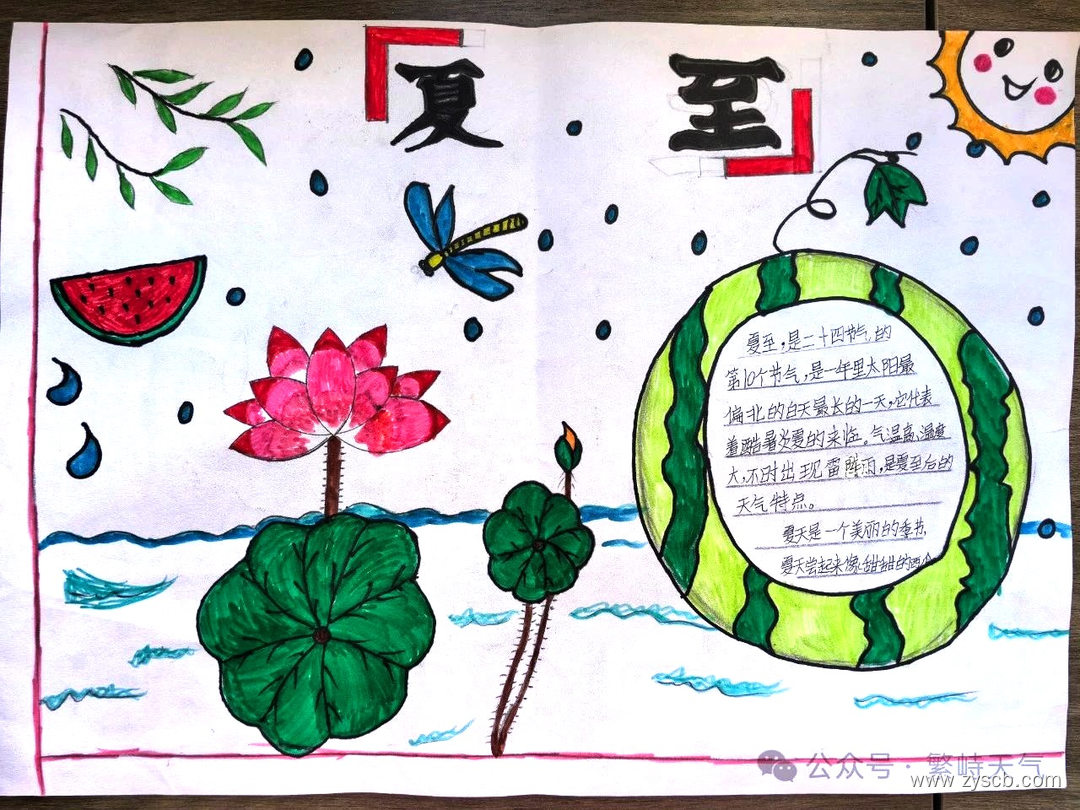 夏至
夏至,是二十四节气的
第10个节气,是一年里太阳最
偏北的白天最长的一天,它代表
着酷暑炎夏的来临。气温高、湿度
大,不时出现雷阵雨,是夏至后的
天气特点。
夏天是一个美丽的季节,
夏天尝起来像甜甜的西
公众号·繁峙天气
www.zyscb.com